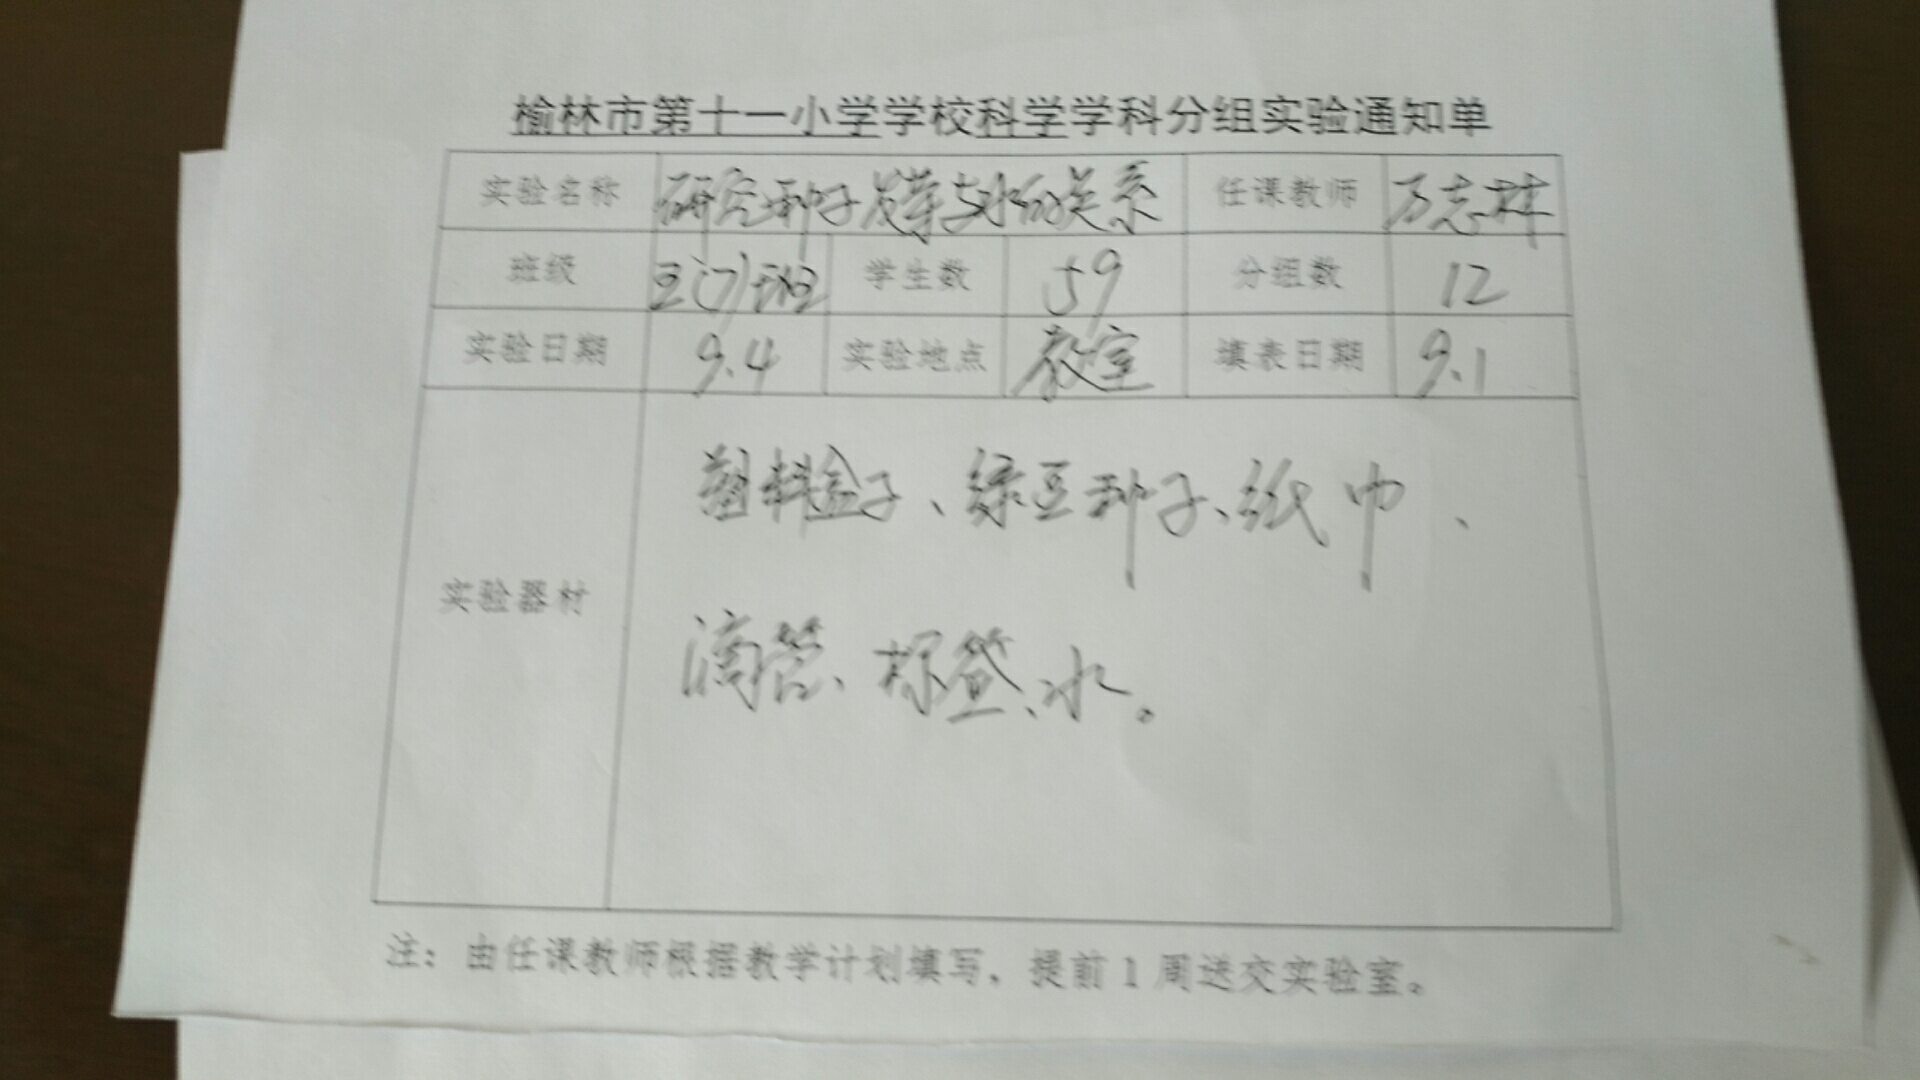 榆林市第十一小学学校科学学科分组实验通知单
实验名称 研究种子发芽与水的关系 任课教师 万志林
班级 五(7)班 学生数 59 分组数 12
实验日期 9.4 实验地点 教室 填表日期 9.1
塑料盒子、绿豆种子、纸巾、
实验器材
滴管、标签、水。
注：由任课教师根据教学计划填写，提前1周送交实验室。